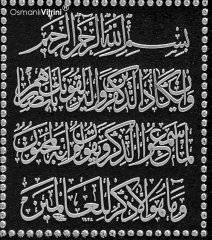 Osmanlı Vitrini
بسم الله الرحمن الرحيم
وإن يكاد الذين كفروا ليزلقونك بأبصارهم
لما سمعوا الذكر ويقولون إنه لمجنون
وما هو إلا ذكر للعالمين